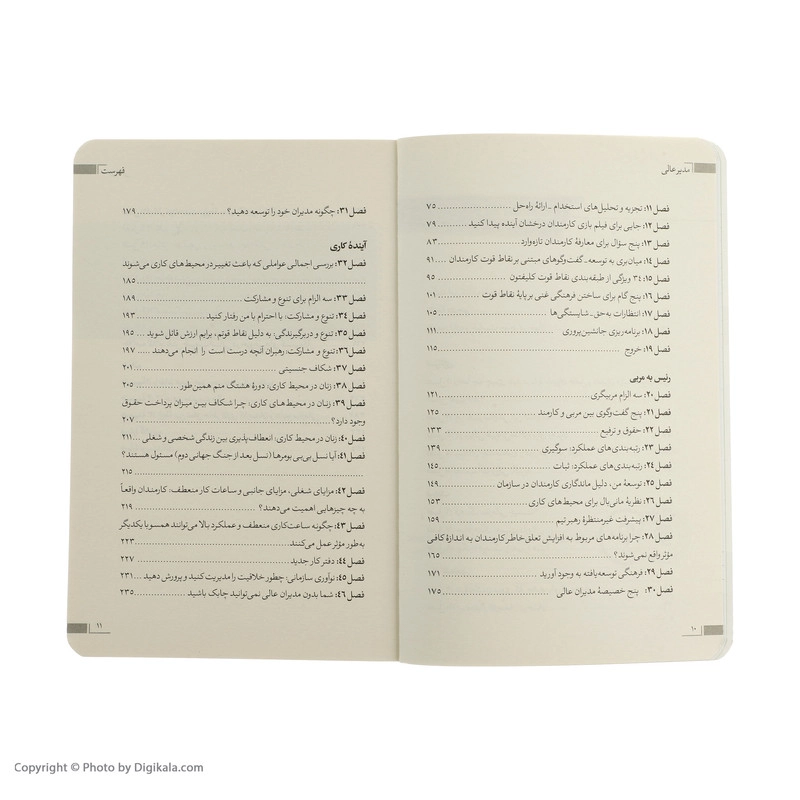 مدیر عالی
فصل ۱۱: تجزیه و تحلیل‌های استخدام _ ارائهٔ راه‌حل ۷۵
فصل ۱۲: جایی برای فیلم بازی کارمندان درخشان آینده پیدا کنید ۷۹
فصل ۱۳: پنج سؤال برای معارفهٔ کارمندان تازه‌وارد ۸۳
فصل ۱۴: میان‌بری به توسعه_ گفت‌وگوهای مبتنی بر نقاط قوت کارمندان ۹۱
فصل ۱۵: ۳۴ ویژگی از طبقه‌بندی نقاط قوت کلیفتون ۹۵
فصل ۱۶: پنج گام برای ساختن فرهنگی غنی بر پایهٔ نقاط قوت ۱۰۱
فصل ۱۷: انتظارات به‌حق_ شایستگی‌ها ۱۰۵
فصل ۱۸: برنامه‌ریزی جانشین‌پروری ۱۱۱
فصل ۱۹: خروج ۱۱۵
رئیس به مربی
فصل ۲۰: سه الزام مربیگری ۱۲۱
فصل ۲۱: پنج گفت‌وگوی بین مربی و کارمند ۱۲۵
فصل ۲۲: حقوق و ترفیع ۱۳۳
فصل ۲۳: رتبه‌بندی‌های عملکرد: سوگیری ۱۳۹
فصل ۲۴: رتبه‌بندی‌های عملکرد: ثبات ۱۴۵
فصل ۲۵: توسعهٔ من، دلیل ماندگاری کارمندان در سازمان ۱۴۹
فصل ۲۶: نظریهٔ مانی‌بال برای محیط‌های کاری ۱۵۳
فصل ۲۷: پیشرفت غیرمنتظرهٔ رهبر تیم ۱۵۹
فصل ۲۸: چرا برنامه‌های مربوط به افزایش تعلق‌خاطر کارمندان به اندازهٔ کافی
مؤثر واقع نمی‌شوند؟ ۱۶۵
فصل ۲۹: فرهنگی توسعه‌یافته به وجود آورید ۱۷۱
فصل ۳۰: پنج خصیصهٔ مدیران عالی ۱۷۵
۱۰
فهرست
فصل ۳۱: چگونه مدیران خود را توسعه دهید؟ ۱۷۹
آیندهٔ کاری
فصل ۳۲: بررسی اجمالی عواملی که باعث تغییر در محیط‌های کاری می‌شوند
۱۸۵
فصل ۳۳: سه الزام برای تنوع و مشارکت ۱۸۹
فصل ۳۴: تنوع و مشارکت: با احترام با من رفتار کنید ۱۹۳
فصل ۳۵: تنوع و دربرگیرندگی: به دلیل نقاط قوتم، برایم ارزش قائل شوید ۱۹۵
فصل ۳۶: تنوع و مشارکت: رهبران آنچه درست است را انجام می‌دهند ۱۹۷
فصل ۳۷: شکاف جنسیتی ۲۰۱
فصل ۳۸: زنان در محیط کاری: دورهٔ هشتگ منم همین‌طور ۲۰۵
فصل ۳۹: زنان در محیط‌های کاری: چرا شکاف بین میزان پرداخت حقوق
وجود دارد؟ ۲۰۷
فصل ۴۰: زنان در محیط کاری: انعطاف‌پذیری بین زندگی شخصی و شغلی ۲۱۱
فصل ۴۱: آیا نسل بی‌بی بومرها (نسل بعد از جنگ جهانی دوم) مسئول هستند؟
۲۱۵
فصل ۴۲: مزایای شغلی، مزایای جانبی و ساعات کار منعطف: کارمندان واقعاً
به چه چیزهایی اهمیت می‌دهند؟ ۲۱۹
فصل ۴۳: چگونه ساعت‌کاری منعطف و عملکرد بالا می‌توانند همسو با یکدیگر
به‌طور مؤثر عمل می‌کنند ۲۲۳
فصل ۴۴: دفتر کار جدید ۲۲۷
فصل ۴۵: نوآوری سازمانی: چطور خلاقیت را مدیریت کنید و پرورش دهید ۲۳۱
فصل ۴۶: شما بدون مدیران عالی نمی‌توانید چابک باشید ۲۳۵
۱۱
Copyright © Photo by Digikala.com